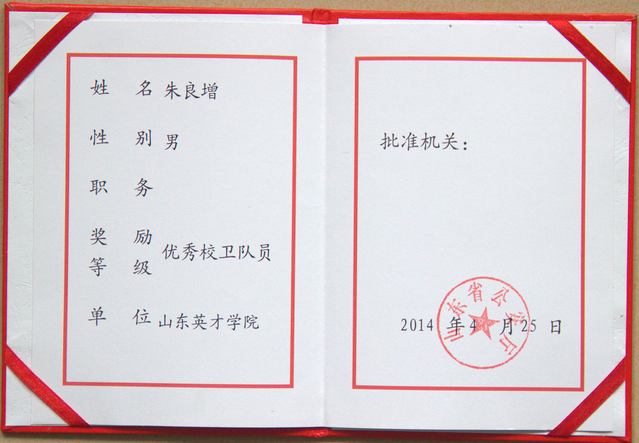 姓 名 朱良增
性 别 男
职 务
奖 励
等 级 优秀校卫队员
单 位 山东英才学院
批准机关：
山东省公安厅
2014 年 4 月 25 日